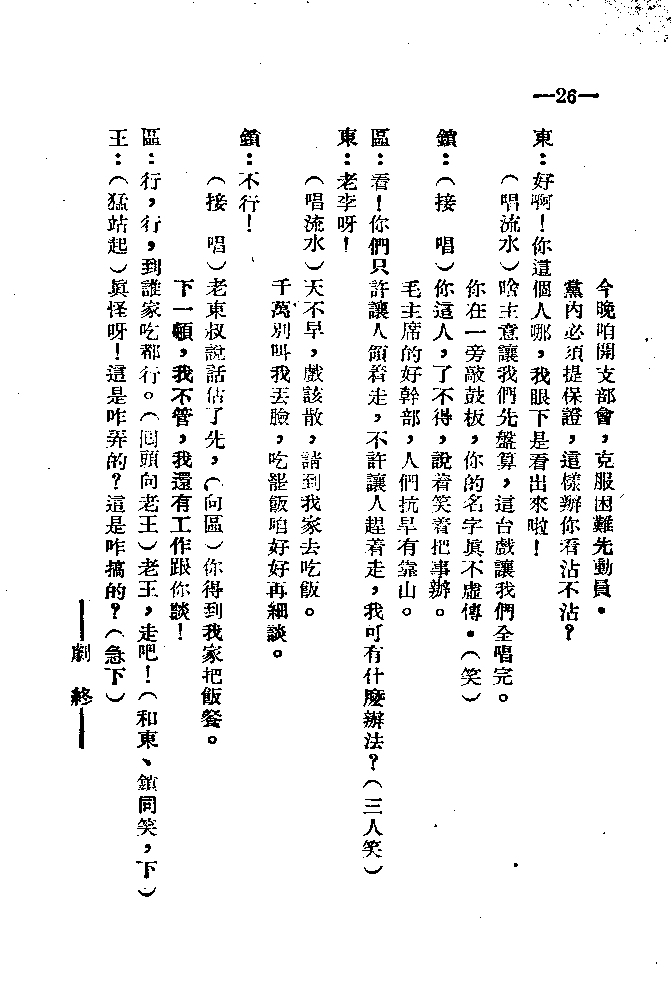 —26—
今晚咱開支部會，克服困難先動員。
黨內必須提保證，這樣辦你看沾不沾？
東：好啊！你這個人哪，我眼下是看出來啦！
（唱流水）啥主意讓我們先盤算，這台戲讓我們全唱完。
你在一旁敲鼓板，你的名字眞不虛傳。（笑）
鎖：（接　唱）你這人，了不得，說着笑着把事辦。
毛主席的好幹部，人們抗旱有靠山。
區：看！你們只許讓人領着走，不許讓人趕着走，我可有什麼辦法？（三人笑）
東：老李呀！
（唱流水）天不早，戲該散，請到我家去吃飯。
千萬別叫我丟臉，吃罷飯咱好好再細談。
鎖：不行！
（接　唱）老東叔說話佔了先，（向區）你得到我家把飯餐。
下一頓，我不管，我還有工作跟你談！
區：行，行，到誰家吃都行。（囘頭向老王）老王，走吧！（和東、鎖同笑，下）
王：（猛站起）眞怪呀！這是咋弄的？這是咋搞的？（急下）
——劇　終——